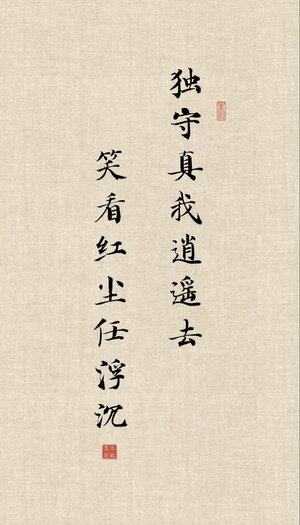 独守真我逍遥去
笑看红尘任浮沉